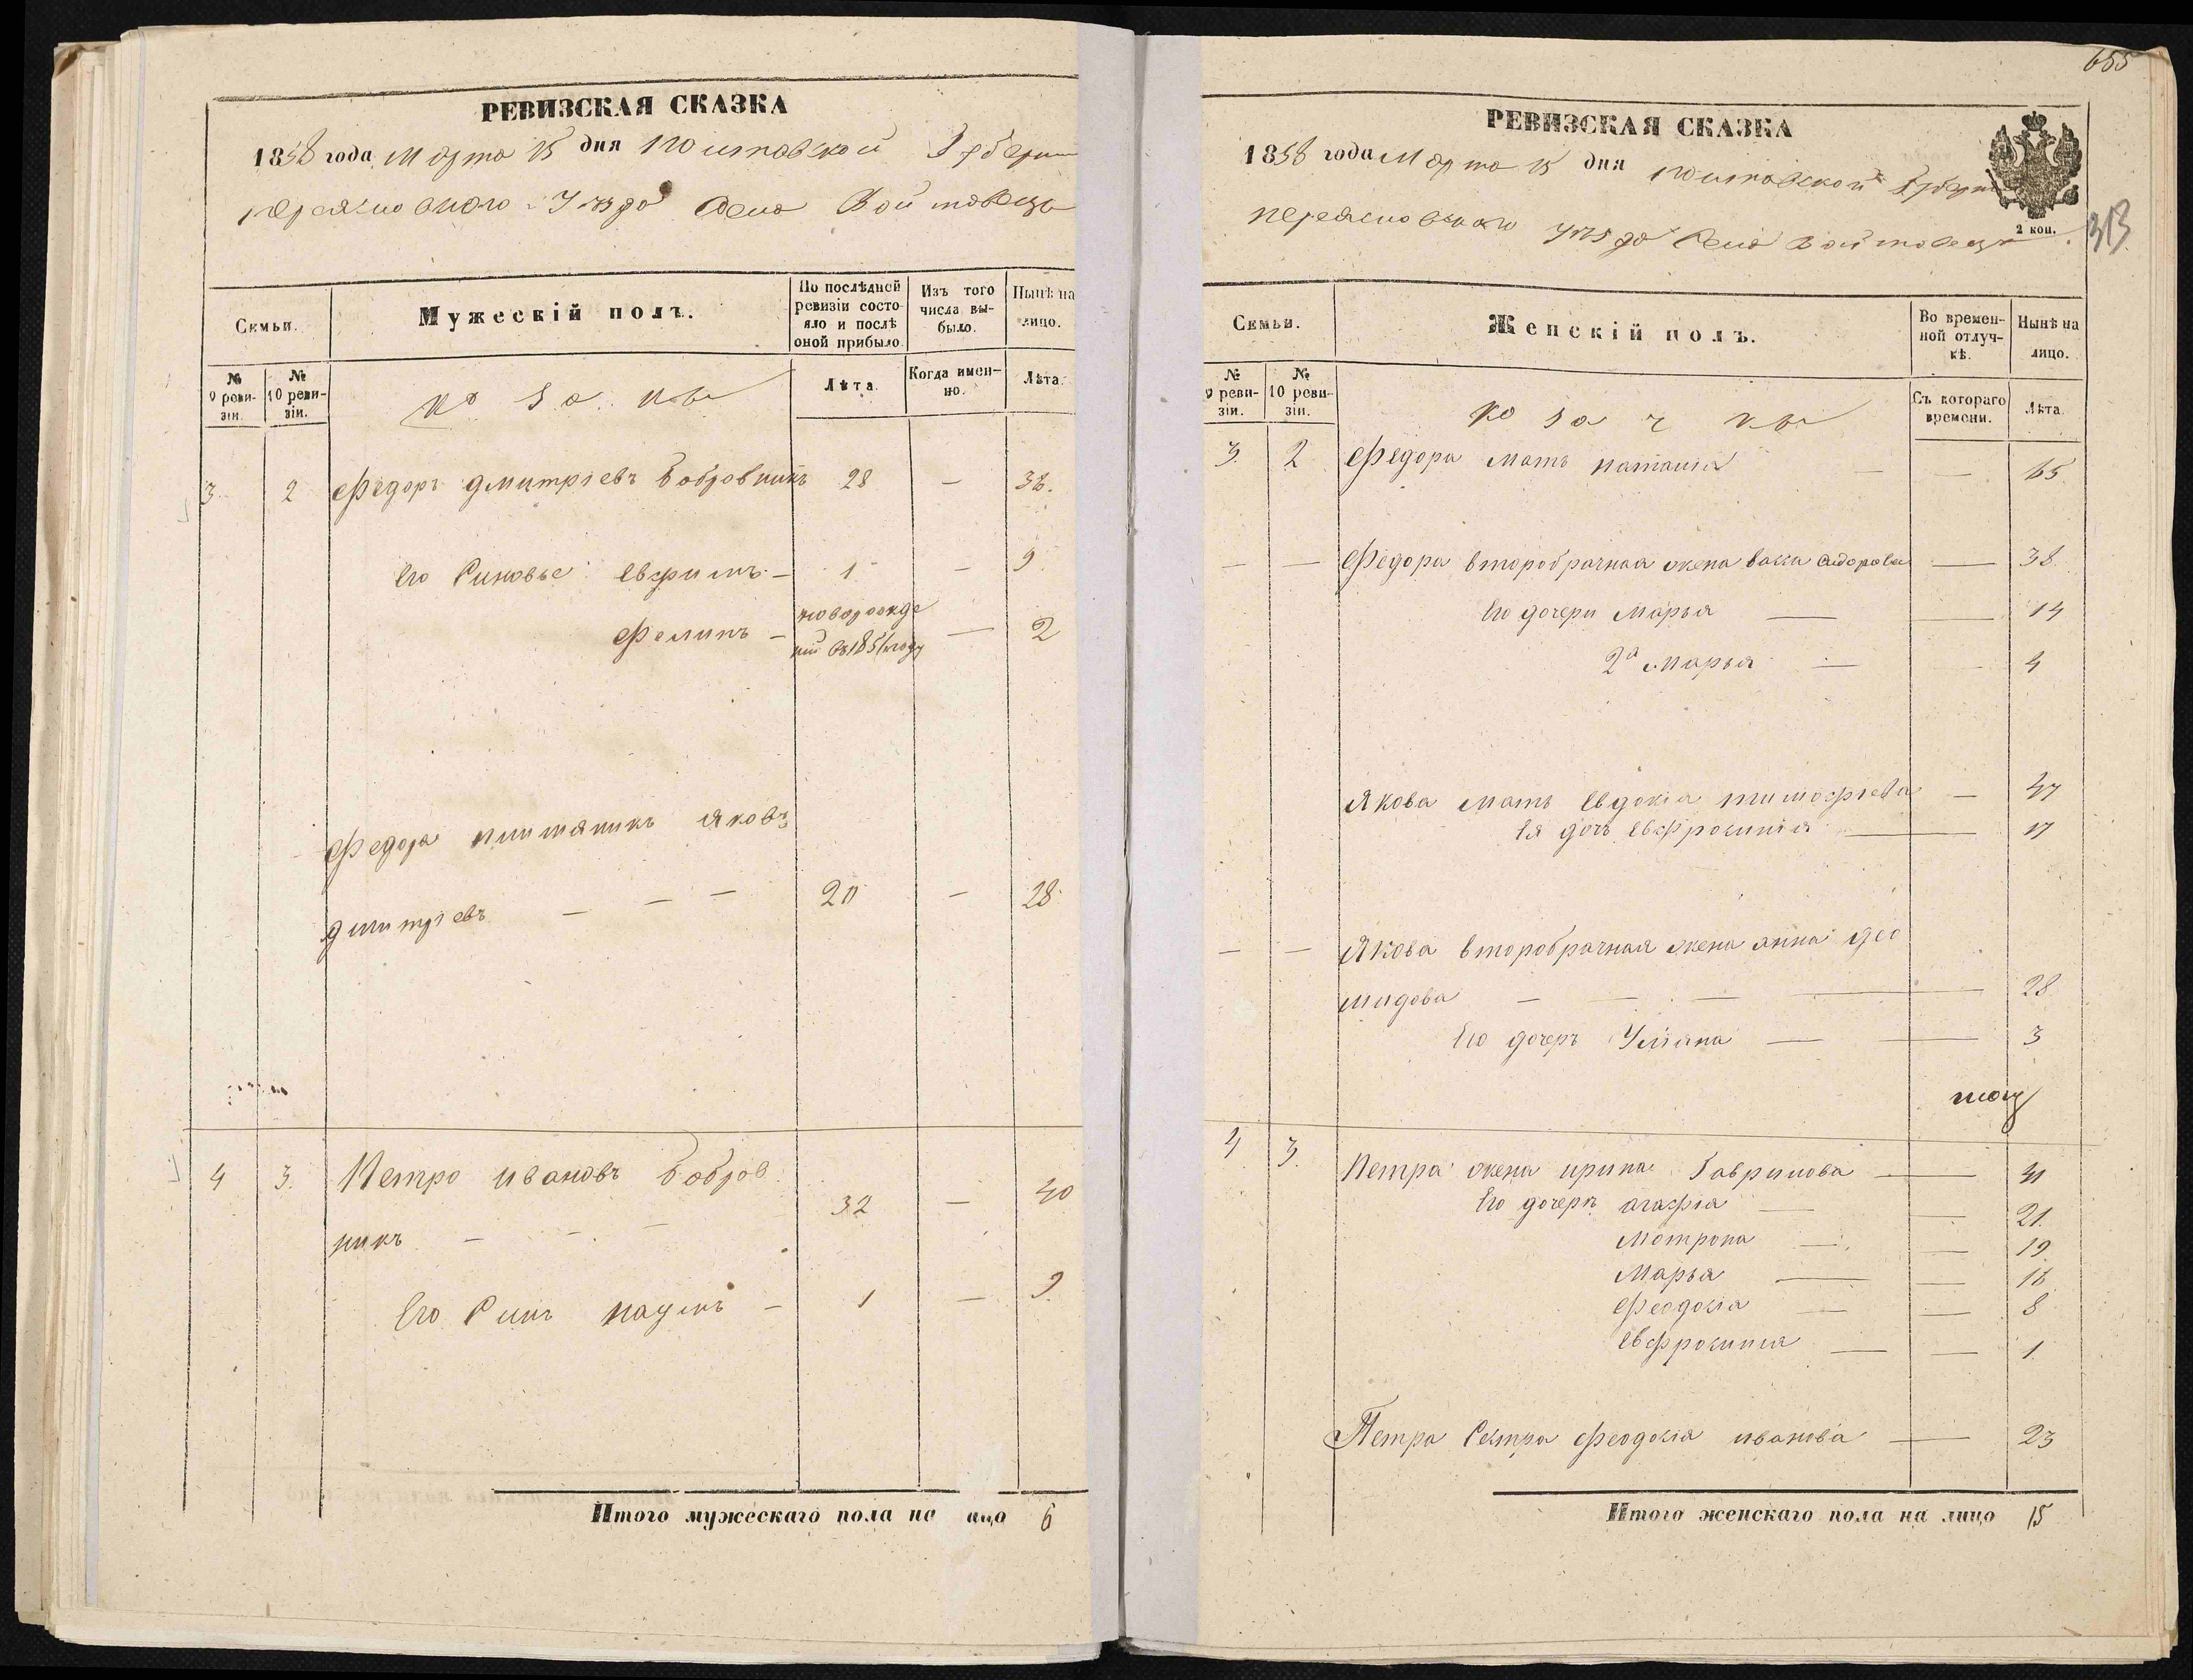 РЕВИЗСКАЯ СКАЗКА
1858 года Марта 15 дня Полтавской Губернии
Переясловского Уезда Села Войтовецъ
Семьи.
Мужескій полъ.
По послѣдней ревизіи состояло и послѣ оной прибыло.
Изъ того числа выбыло.
Нынѣ на лицо.
№ 9 ревизіи.
№ 10 ревизіи.
козаки
Лѣта.
Когда именно.
Лѣта.
3. 2 Федоръ Дмитріевъ Бобровникъ 28 — 36.
Его Синовье Евфимъ — 1 — 9.
Филипъ — новорожде — 2
ній въ 185 году
Федора племяникъ Яковъ
Дмитріевъ — — — 20 — 28.
4 3. Петро Ивановъ Бобров
никъ — — — 32 — 40
Его Синъ Наумъ — 1 — 9.
Итого мужескаго пола на лицо 6
655
РЕВИЗСКАЯ СКАЗКА
1858 года Марта 15 дня Полтавской Губерніи
Переясловского Уезда Села Войтовецъ
2 коп.
313
Семьи.
Женскій полъ.
Во временной отлучкѣ.
Нынѣ на лицо.
№ 9 ревизіи.
№ 10 ревизіи.
козачки
Съ котораго времени.
Лѣта.
3. 2 Федора мать Наталія — — 65.
— — Федора второбрачная жена Васса Сидорова — 38.
Его дочери Марья — — 14
2я Марья — — 4
Якова мать Евдокія Тимофіева — 47
Ея дочь Евфросинія — 17
— — Якова второбрачная жена Анна Део
мидова — — — — 28
Его дочеръ Уліяна — — 3
4 3. Петра жена Ирина Гаврилова — 41
Его дочеръ Агафія — — 21.
Мотрона — — 19.
Марья — — 16
Феодосія — — 8
Евфросинія — — 1.
Петра Сестра Феодосія Иванова — 23
Итого женскаго пола на лицо 15